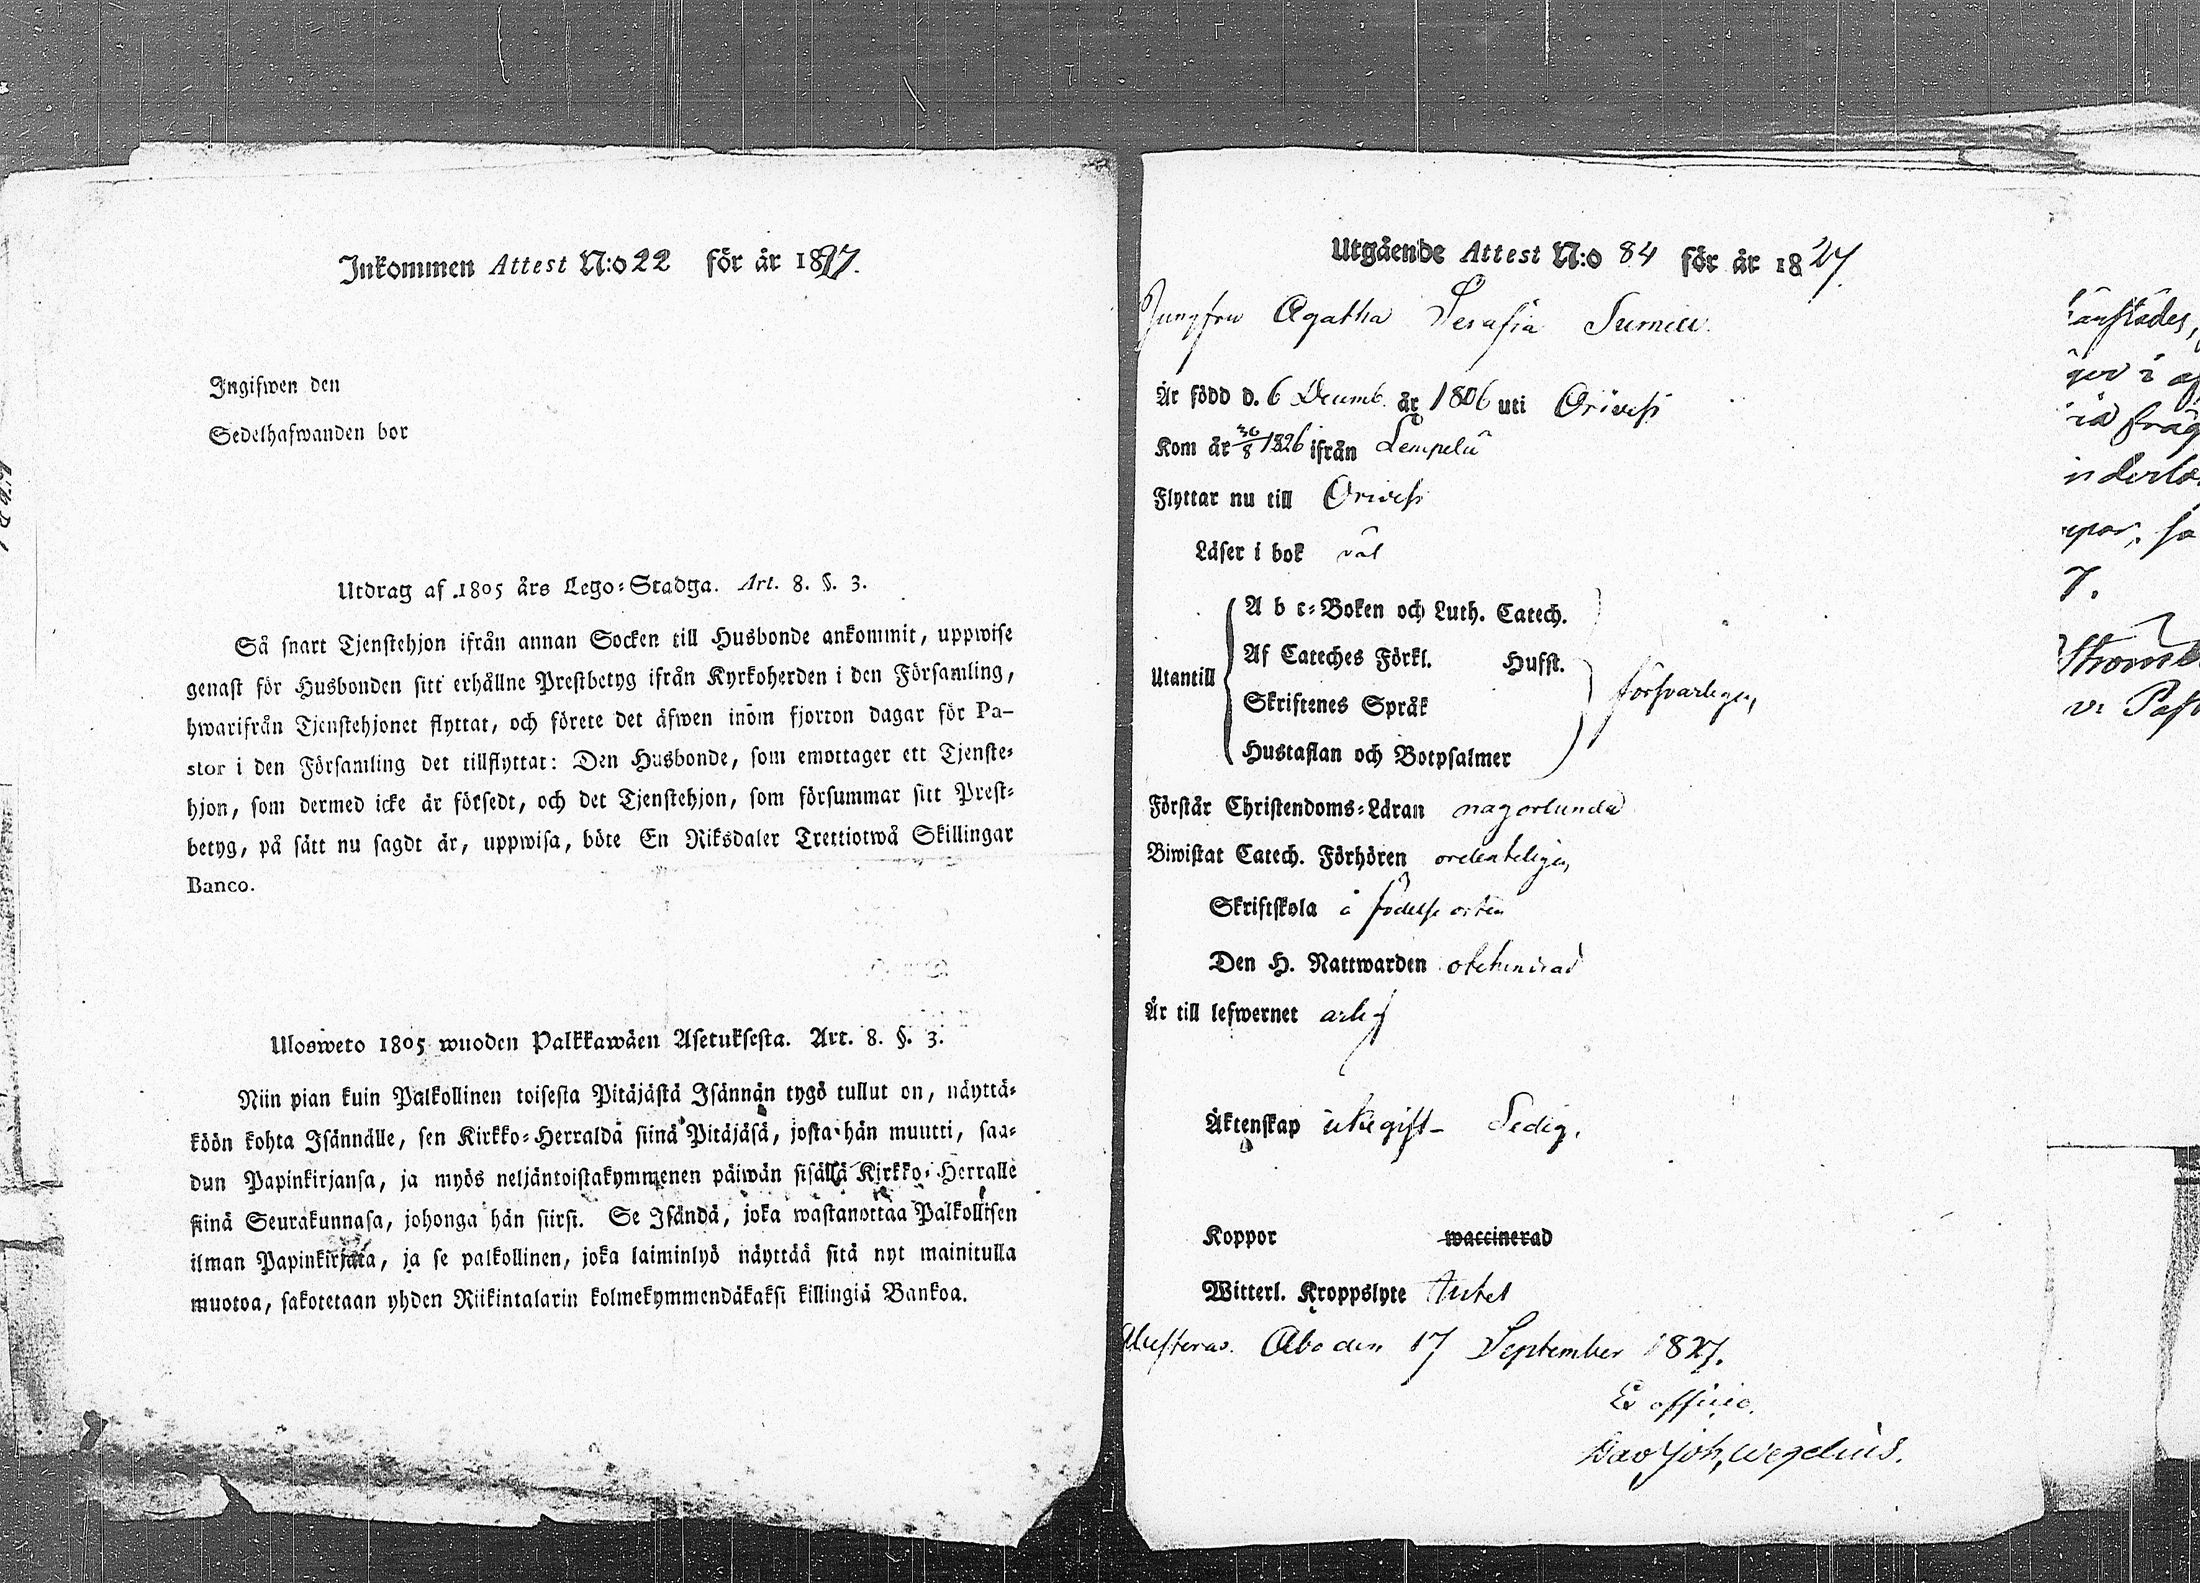 Inkommen Attest N:o 22 för år 1827.
Ingifwen den
Sedelhafwanden bor
Utdrag af 1805 års Lego-Stadga. Art. 8. §. 3.
Så snart Tjenstehjon ifrån annan Socken till Husbonde ankommit, uppwise
genast för Husbonden sitt erhållne Prestbetyg ifrån Kyrkoherden i den Församling,
hwarifrån Tjenstehjonet flyttat, och förete det äfwen inom fjorton dagar för Pa-
stor i den Församling det tillflyttat: Den Husbonde, som emottager ett Tjenste-
hjon, som dermed icke är försedt, och det Tjenstehjon, som försummar sitt Prest-
betyg, på sätt nu sagdt är, uppwisa, böte En Riksdaler Trettiotwå Skillingar
Banco.
Ulosweto 1805 wuoden Palkkawäen Asetuksesta. Art. 8. §. 3.
Niin pian kuin Palkollinen toisesta Pitäjästä Isännän tygö tullut on, näyttä-
köön kohta Isännälle, sen Kirkko-Herralda siinä Pitäjäsä, josta hän muutti, saa-
dun Papinkirjansa, ja myös neljäntoistakymmenen päiwän sisällä Kirkko-Herralle
siinä Seurakunnasa, johonga hän siirsi. Se Isändä, joka wastanottaa Palkollisen
ilman Papinkirjata, ja se palkollinen, joka laiminlyö näyttää sitä nyt mainitulla
muotoa, sakotetaan yhden Riikintalarin kolmekymmendäkaksi killingiä Bankoa.
Utgående Attest N:o 84 för år 1827.
Jungfru Agatha Serafia
Är född d. 6 Decemb. år 1806 uti Orivesi
Kom år 30/8 1826 ifrån Lempelä
Flyttar nu till Orivesi
Läser i bok väl
A b c-Boken och Luth. Catech.
Af Cateches Förkl. Husst.
Utantill försvarligen,
Skriftenes Språk
Hustaflan och Botpsalmer
Förstår Christendoms-Läran någorlunda
Biwistat Catech. Förhören ordenteligen,
Skriftskola å födelse orten
Den H. Nattwarden obehindrad
Är till lefwernet ärlig
Äktenskap icke gift - Ledig.
Koppor waccinerad
Witterl. Kroppslyte Intet
Attesteras. Åbo den 17 September 1827.
Ex officio.
Dav Joh, Wegelius.